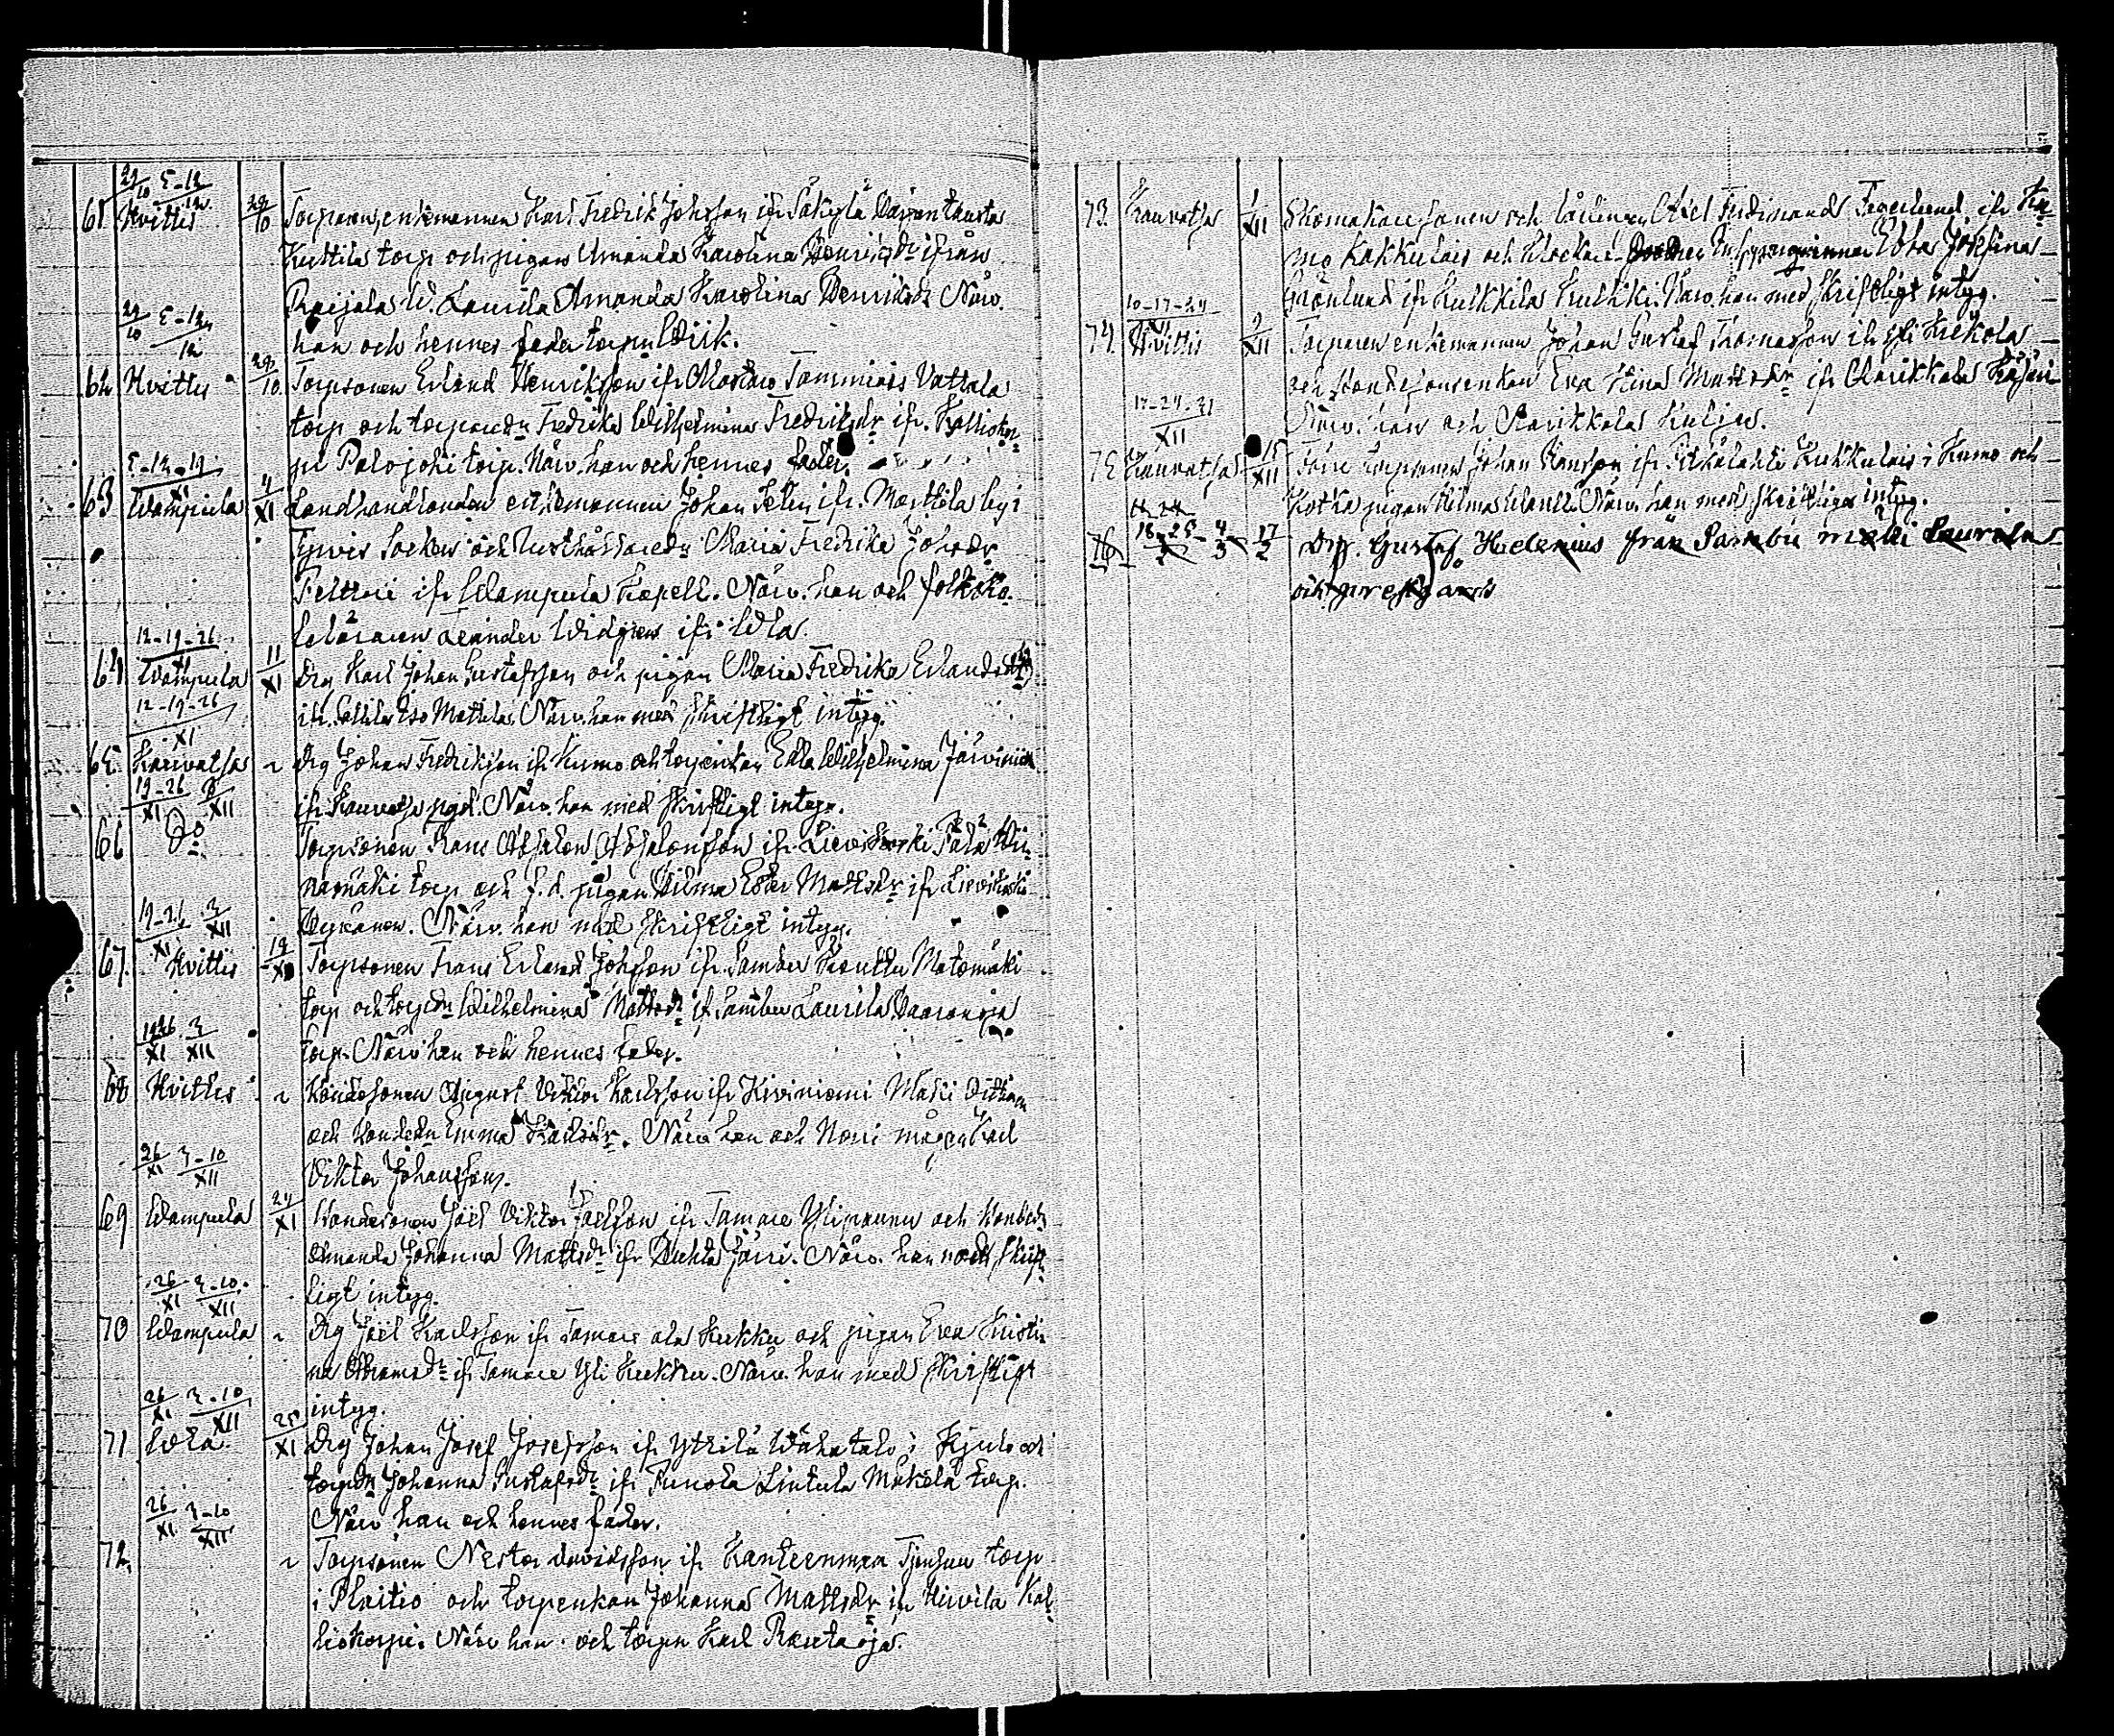 29/10 5-12/12
61 Hvittis 29/10 Torparen, enkemannen Karl Fredrik Johsson ifr Säkylä
Kuttila torp och pigan Amanda Karolina Henriksdr ifrån
Raijala W. Laurila Amanda Karolina Henriksdr Närv.
29/10 5-12/12
han och hennes fader torpn Wärik.
62 Hvittis 29/10 Torpsonen Erland Henriksson ifr Mastaro Tammiais Vattala
torp och torparedn Fredrika Wilhelmina Fredriksdr ifr. Kalliokor-
pi Palojoki torp. Närv. han och hennes fader.
5-12-19/XI
63 Wampula 4/XI Landhandlanden enkemannen Johan Felin ifr. Marttila by i
Tyrvis Socken och Rusthållaredn Maria Fredrika Johsdr
Felttari ifr Wampula Kapell. Närv. han och folksko-
leläraren Widgren ifr Wla.
12-19-26/XI
64 Wampula 11/XI Drg Karl Johan Gustafsson och pigan Maria Fredrika Erlandsdr
ifr. Sallila Iso Mattila. Närv. han med skriftligt intyg.
12-19-26/XI
65 Kauvatsa " Drg Johan Fredriksson ifr Kumo och torpenkan Edla Wilhelmina Järvinen
ifr Kauvatsa pgd. Närv. han med skriftligt intyg.
19-26/XI 3/XII
66 Do Torpsonen Frans Absalon Absalonsson ifr Lievikoski Pälä
narmäki torp och f.d. pigan Hilma Ester Mattsdr ifr Lievikoski
Närv. han med skriftligt intyg.
19-26/XI 3/XII
67. Hvittis 19/XI Torpsonen Frans Erland Johsson ifr Sambu Knuttu Matomäki
torp och torpdn Wilhelmina Mattsdr ifr Sambu Laurila Vaaranoja
torp. Närv han och hennes fader.
19-26/XI 3/XII
68 Hvittis " Bondesonen August Viktor Karlsson ifr Kiviniemi Maki
och bondedn Emma Karlsdr. Närv han och Norri mågen Karl
Viktor Johansson.
26/XI 3-10/XII
69 Wampula 24/XI Bondesonen Joël Viktor Joelsson ifr Tamare Ylipaunu och bondedn
Amanda Johanna Mattsdr ifr Huhta Järri. Närv. han med skrift-
ligt intyg.
26/XI 3-10/XII
70 Wampula " Drg Joël Karlsson ifr Tamare ala Kukku och pigan Eva Kristi-
na Abramsdr ifr Tamare Yli Kukku. Närv. han med skriftligt
intyg.
26/XI 3-10/XII
71 Wla. 25/XI Drg Johan Josef Josefsson ifr Yttilä Wähatalo i Kjulo och
torpdn Johanna Gustafsdr ifr Punola Lintula Mäkelä torp.
Närv han och hennes fader.
26/XI 3-10/XII
72. " Torpsonen Nestor Davidsson ifr Kanteenmaa torp
i Plaitio och torpenkan Johanna Mattsdr ifr Hirvilä Kal-
liokorpi. Närv han och torpn Karl Rautaoja.
73. Kauvatsa 1/XII Skomakaresonen och lärlingen Axel Ferdinand Fagerlund ifr Ku-
mo Kakkulais och klockare Edla Josefina
Grönlund ifr Kulkkila Kulkki. Närv han med skriftligt intyg.
10-17-24/XII
74. Hvittis 9/XII Torparen enkemannen Johan Gustaf Thomasson ifr Kekola
och bondesonenkan Eva Stina Mattsdr ifr Karikkala
Närv. han och Karikkala
17-24-31/XII
75 Kauvatsa 15/XII Förre torparen Johan Fransson ifr Pitkälahti Kukkulais i Kumo och
Kotka pigan Hilma Närv. han med skriftliga intyg.
76 18-25- 4/3 17/2 Drg. Gustaf Helenius från Sambu mäki Laurila
och